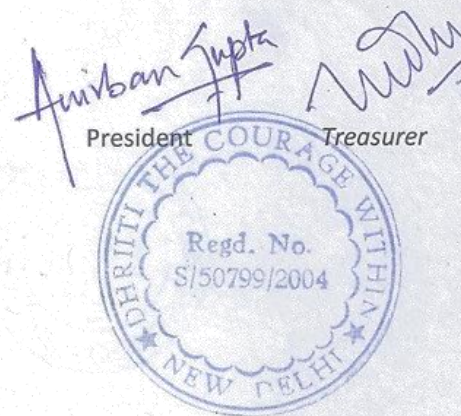 Anirban Gupta
President Treasurer
DHRIITI THE COURAGE WITHIN
Regd. No.
S/50799/2004
NEW DELHI